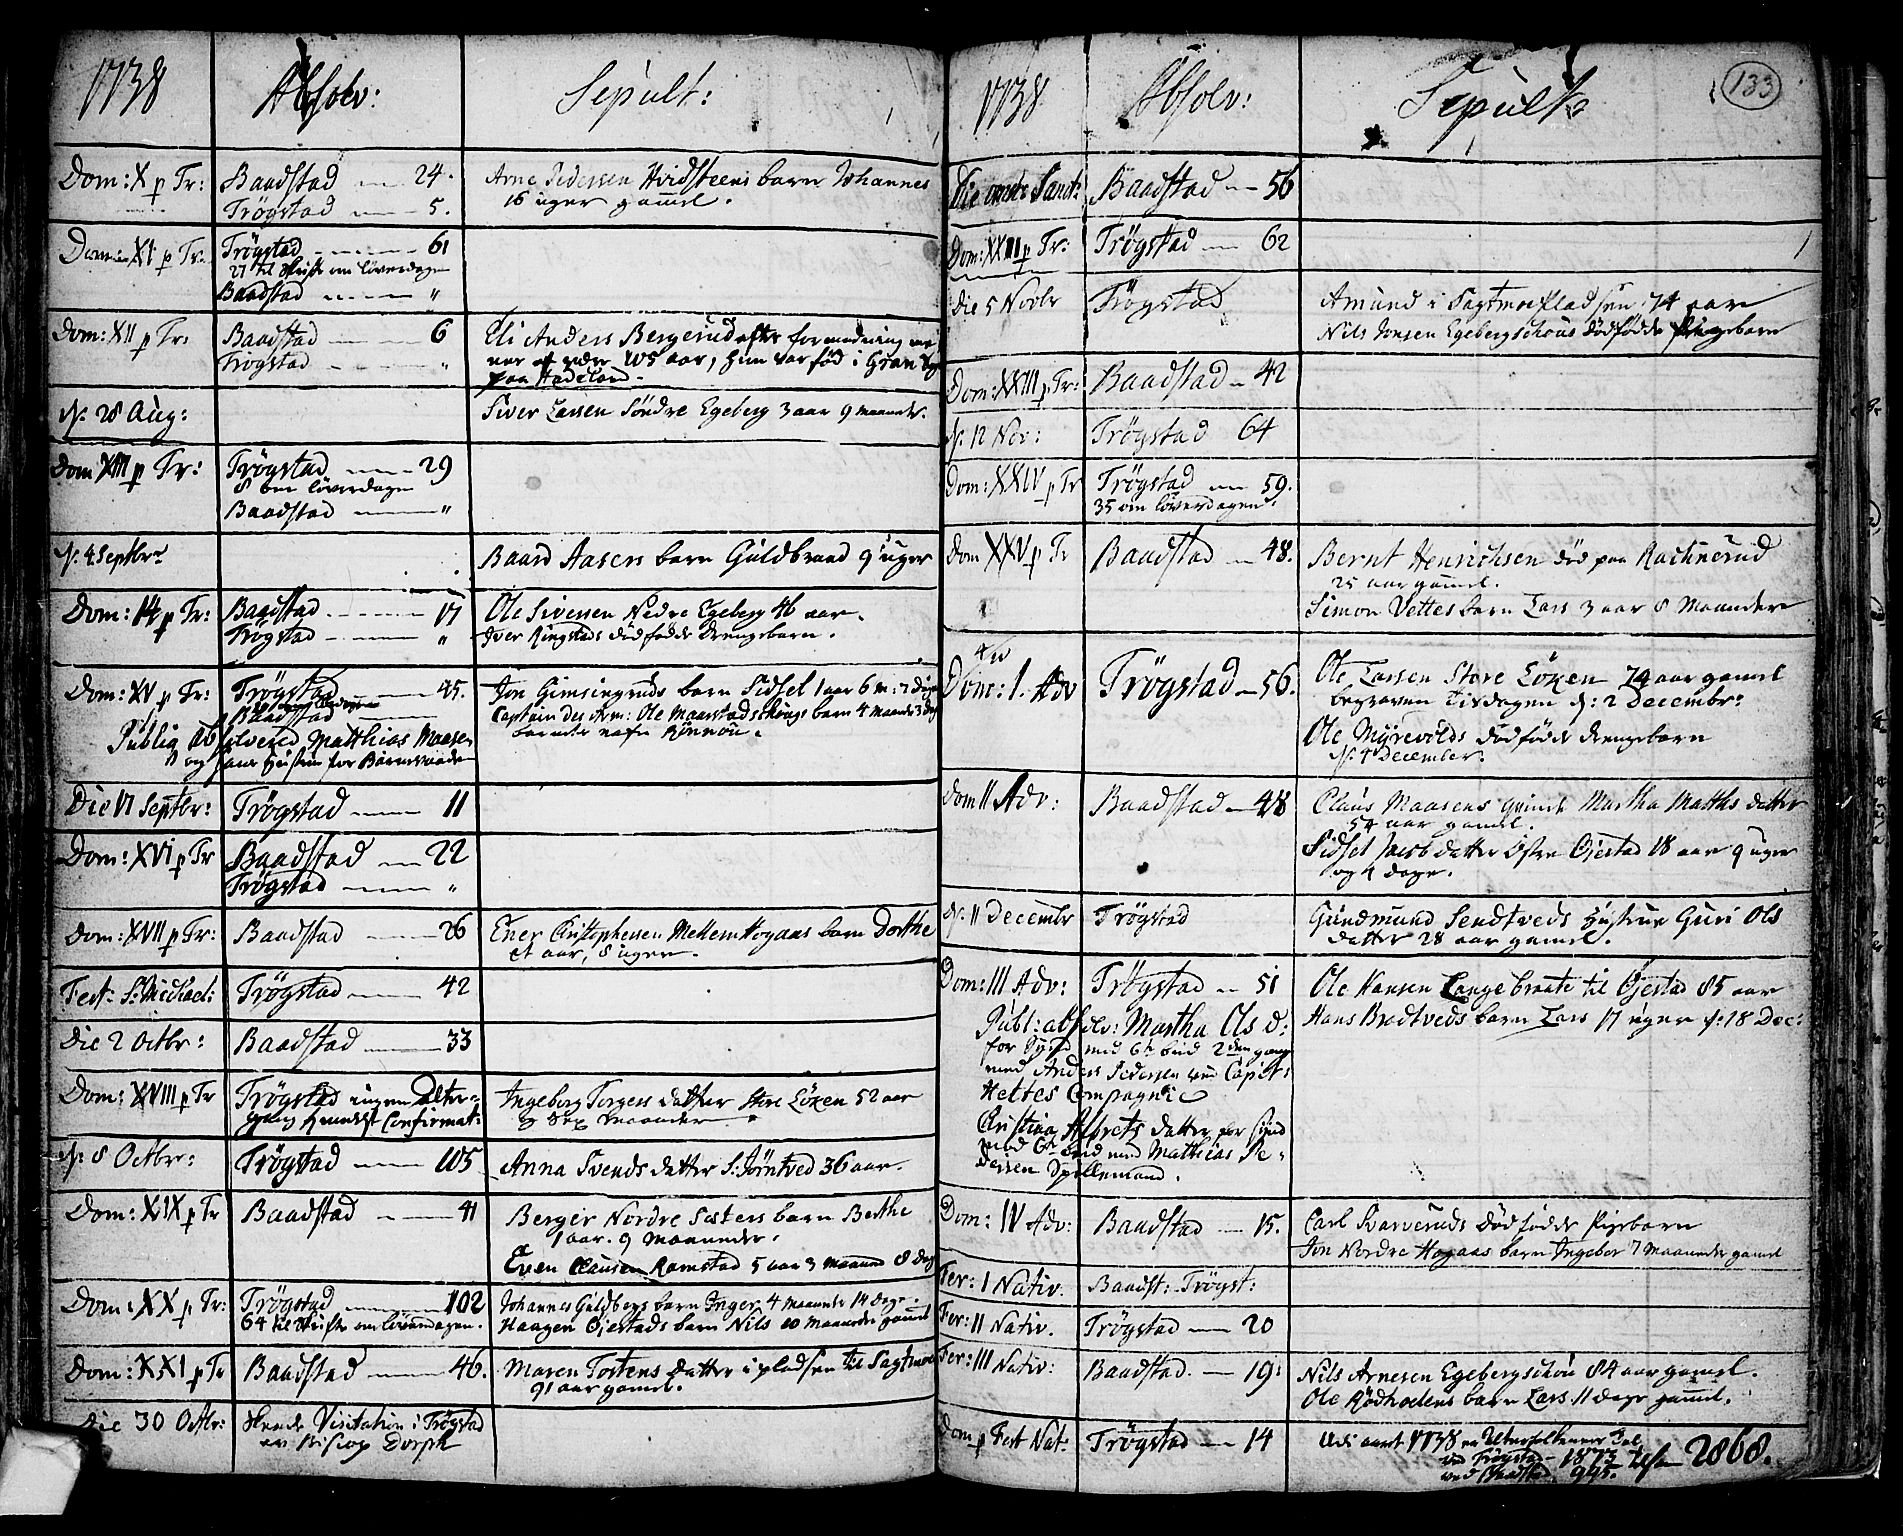 1738 Absolv: Sepult:
Dom: X p Tr: Baadstad 24. Arne Pedersen Hvidsteens barn Johannes
Trögstad 5. 16 uger gamel.
Dom: XI p Tr: Trögstad 61
27 til Skrifte om löverdagen
Baadstad "
Dom: XII p Tr: Baadstad 6 Eli Anders Bergerud efter formodning
Trögstad " 105 aar, hun var föd i Gran
paa Hadeland.
d: 28 Aug: Siver Larsen Söndre Egeberg 3 aar 9 maaneder.
Dom XIII p Tr: Trögstad 29
8 om löverdagen
Baadstad "
d: 4 Septbr: Baard Aasers barn Guldbrand 9 uger
Dom: 14 p Tr: Baadstad 17 Ole Sivessen Nedre Egeberg 46 aar.
Trögstad " Iver Ringstads dödfödde drengebarn.
Dom: XV p Tr: Trögstad 45. Jon Gimsingruds barn Sidsel 1 aar 6 m: 2 dage
Baadstad Captain des Arm: Ole Maarstadschougs barn 4 maander 3 dag
Publiq Absolvered Matthias Maasen
og hans Hustru for Barnevaade
Die 17 Septbr: Trögstad 11
Dom: XVI p Tr Baadstad 22
Trögstad "
Dom: XVII p Tr: Baadstad 26 Ener Christophersen Mellem Hogaas barn Dorthe
et aar, 8 uger.
Fest: S: Michael: Trögstad 42
Die 2 Octbr: Baadstad 33
Dom: XVIII p Tr Trögstad ingen Alter-
gang Confirmat: Ingeborg Torgers datter Store Löken 52 aar
og sex maaneder
d: 8 Octbr: Trögstad 105 Anna Svends datter S: Jörntved 36 aar.
Dom: XIX p Tr Baadstad 41 Berger Nordre Sosters barn Berthe
1 aar. 9 maaneder.
Even Clausen Ramstad 5 aar 3 maaned 8 dag
Dom: XX p Tr: Trögstad 102 Johannes Guldbergs barn Inger 4 maaneder 14 dage.
64 til Skrifte om löverdagen. Haagen Ojestads barn Nils 10 maaneder gamel
Dom: XXI p Tr Baadstad 46. Maren Tostens datter i pladsen til Sagtmoe
91 aar gamel.
Die 30 Octbr: Skeede Visitation i Trögstad
av Biscop Dorph
1738 Absolv: Sepult: 133
Die omn: Sanct: Baadstad 56
Dom: XXII p Tr: Trögstad 62
Die 5 Novbr Trögstad Amund i Sagtmoepladsen 74 aar
Nils Jonsen Egebergschous dödfödde Pigebarn
Dom: XXIII p Tr: Baadstad 42
d: 12 Nov: Trögstad 64
Dom: XXIV p Tr Trögstad 59.
35 om löverdagen.
Dom XXV p Tr Baadstad 48. Bernt Henrichsen död paa Rachnerud
25 aar gamel.
Simon Vettes barn Lars 3 aar 8 Maaneder
Dom: 1. Adv Trögstad 56. Ole Larsen Store Löken 74 aar gamel
begraven Tirsdagen d: 2 Decembr:
Ole Myrevolds dödfödde drengebarn
d: 4 December.
Dom II Adv: Baadstad 48 Claus Maasens qvinde Martha Matths datter
54 aar gamel.
Sidsel Jacobdatter Ofre Ojestad 18 aar 9 uger
og 4 dage.
d: 11 Decembr Trögstad Gundmund Sendtveds Hustrue Guri Ols
datter 28 aar gamel.
Dom: III Adv: Trögstad 51 Ole Hansen Langebraate til Ojestad 85 aar
Publ: absolv: Martha Ols d: Hans Bredtveds barn Lars 17 uger d: 18 Dec:
for Synd mod 6te bud 2den gang
med Anders Pedersen Capit:
Hettes Compagnie
Cristina Albrets datter for synd
mod 6te bud med Matthias Pe-
dersen Spillemand.
Dom: IV Adv: Baadstad 15. Carl Svarveruds dödfödde Pigebarn
Jon Nordre Hogaas barn Ingebor 7 maaneder gamel
Fer: I Nativ. Baadst: Trögst:
Fer: II Nativ. Trögstad 20
Fer: III Nativ: Baadstad 19: Nils Arnesen Egebergschou 84 aar gamel.
Ole Rödholens barn Lars 11 dage gamel.
Dom p Fest Nat: Trögstad 14 Udi aaret 1738 er Altergiesternes Tal
ved Trögstad 1873
ved Baadstad 995. 2868.